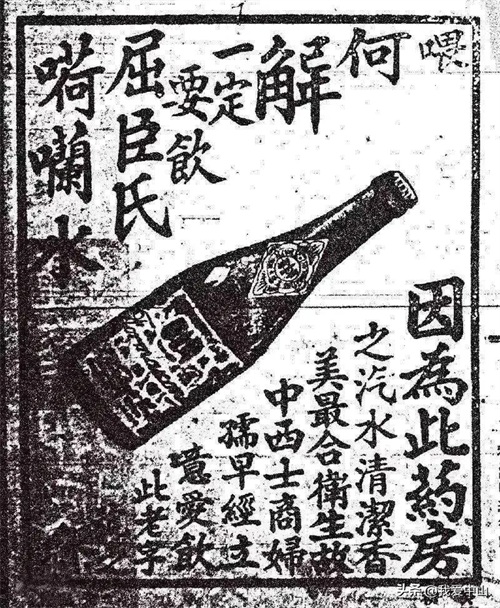 喂
何
解
一定
要飲
屈臣氏
嗬㘓水
因為此葯房
之汽水清潔香
美最合衛生故
中西士商婦
孺早經立
噫愛飲
此老字
头条 @我爱中山